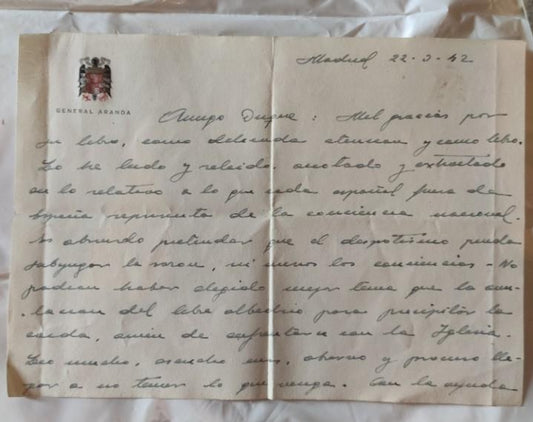 Madrid 22-3-42
GENERAL ARANDA
Amigo Duque: Mil gracias por
su libro, como delicada atencion y como libro.
Lo he leido y releido, anotado y extractado
en lo relativo a lo que cada español fuera de
España representa de la conciencia nacional.
Es absurdo pretender que el despotismo pueda
subyugar la razon, ni menos las conciencias - No
podian haber elegido mejor tema que la anu-
lacion del libre albedrio para precipitar la
caida, amen de enfrentarse con la Iglesia.
Leo mucho, escucho mas, ahorro y procuro lle-
gar a no temer lo que venga. Con la ayuda